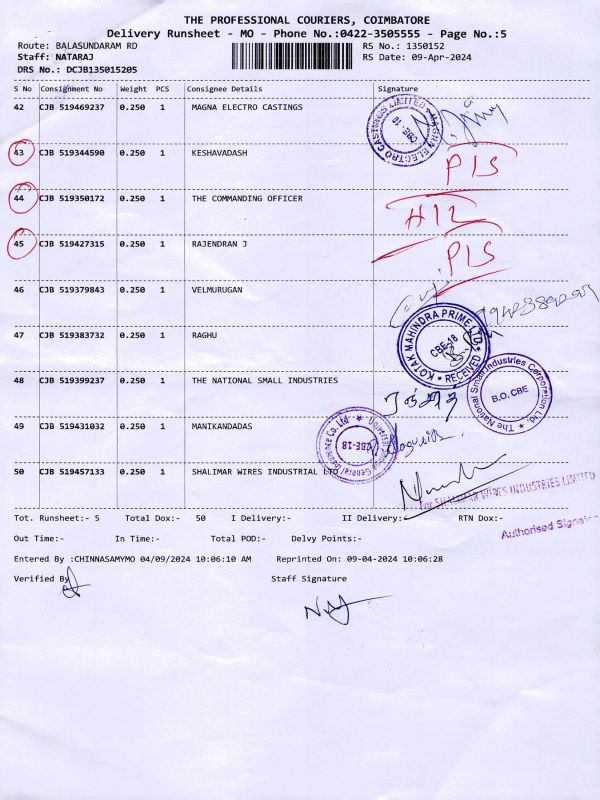 THE PROFESSIONAL COURIERS, COIMBATORE
Delivery Runsheet - MO - Phone No.:0422-3505555 - Page No.:5
Route: BALASUNDARAM RD RS No.: 1350152
Staff: NATARAJ RS Date: 09-Apr-2024
DRS No.: DCJB135015205
S No Consignment No Weight PCS Consignee Details Signature
42 CJB 519469237 0.250 1 MAGNA ELECTRO CASTINGS
MAGNA ELECTRO CASTINGS LIMITED CBE-18
43 CJB 519344590 0.250 1 KESHAVADASH P1S
44 CJB 519350172 0.250 1 THE COMMANDING OFFICER
45 CJB 519427315 0.250 1 RAJENDRAN J P1S
46 CJB 519379843 0.250 1 VELMURUGAN
KOTAK MAHINDRA PRIME LTD. CBE-18 RECEIVED
47 CJB 519383732 0.250 1 RAGHU
48 CJB 519399237 0.250 1 THE NATIONAL SMALL INDUSTRIES
The National Small Industries Corporation Ltd B.O. CBE
49 CJB 519431032 0.250 1 MANIKANDADAS
General Insurance Co. Ltd CBE-18
50 CJB 519457133 0.250 1 SHALIMAR WIRES INDUSTRIAL LTD
For SHALIMAR WIRES INDUSTRIES LIMITED
Authorised Signatory
Tot. Runsheet:- 5 Total Dox:- 50 I Delivery:- II Delivery:- RTN Dox:-
Out Time:- In Time:- Total POD:- Delvy Points:-
Entered By :CHINNASAMYMO 04/09/2024 10:06:10 AM Reprinted On: 09-04-2024 10:06:28
Verified By Staff Signature